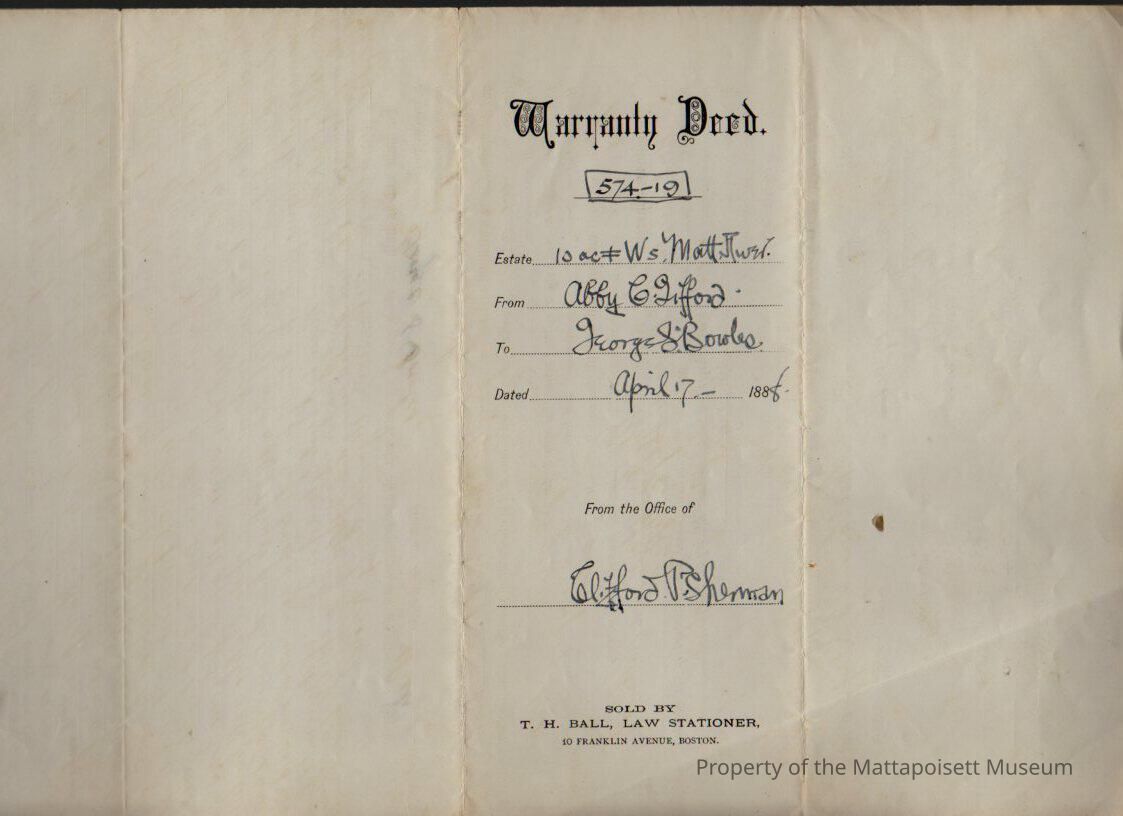 Warranty Deed.
574-19
Estate 10 ac± Ws. Matt. River.
From Abby C. Gifford
To George S. Bowles
Dated April 17 - 188
From the Office of
Clifford P. Sherman
SOLD BY
T. H. BALL, LAW STATIONER,
10 FRANKLIN AVENUE, BOSTON.
Property of the Mattapoisett Museum